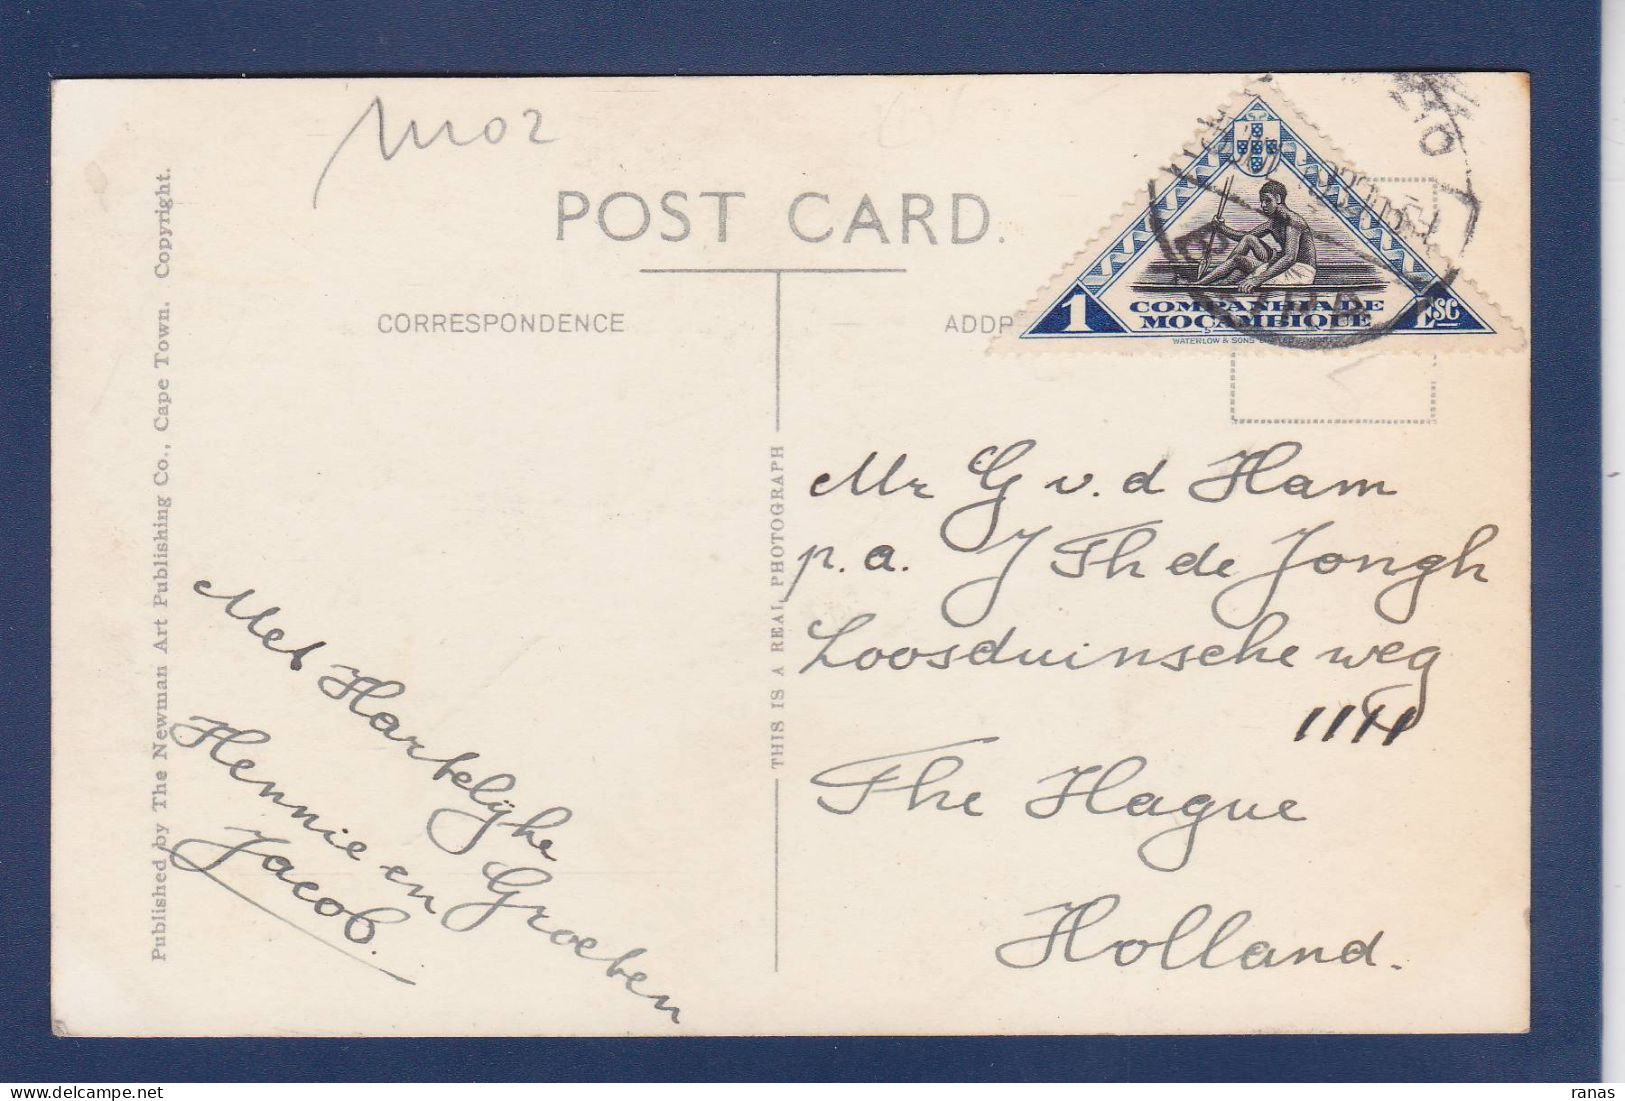 moz
POST CARD.
CORRESPONDENCE
ADDR
1
COMPANHIA DE
MOÇAMBIQUE
ESC
WATERLOW & SONS
Published by The Newman Art Publishing Co., Cape Town. Copyright.
THIS IS A REAL PHOTOGRAPH
Met Hartelijke
Groeten
Hennie en
Jacob.
Mr G v. d Ham
p.a. J Th de Jongh
Loosduinsche weg
The Hague
Holland.
ranas